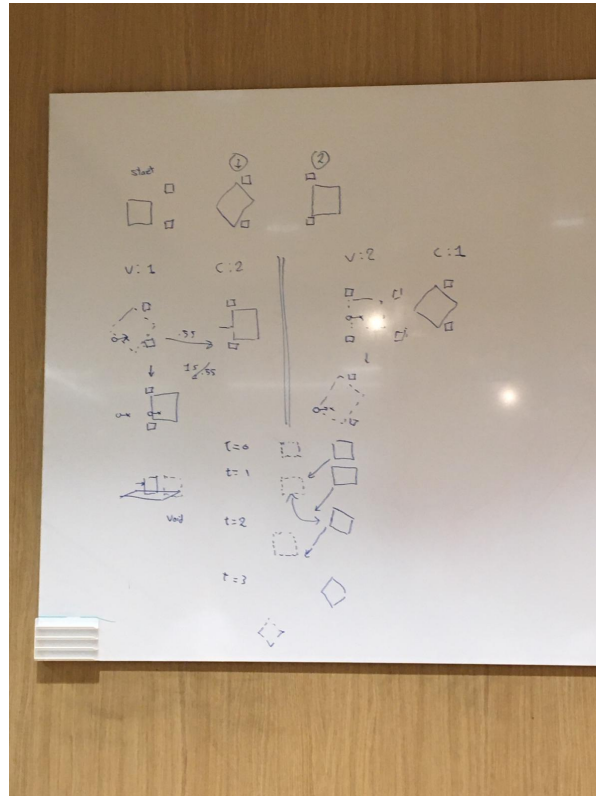 start ① ②
V:1 C:2 V:2 C:1
.35
15 / .35
t=0
t=1
t=2
Void
t=3